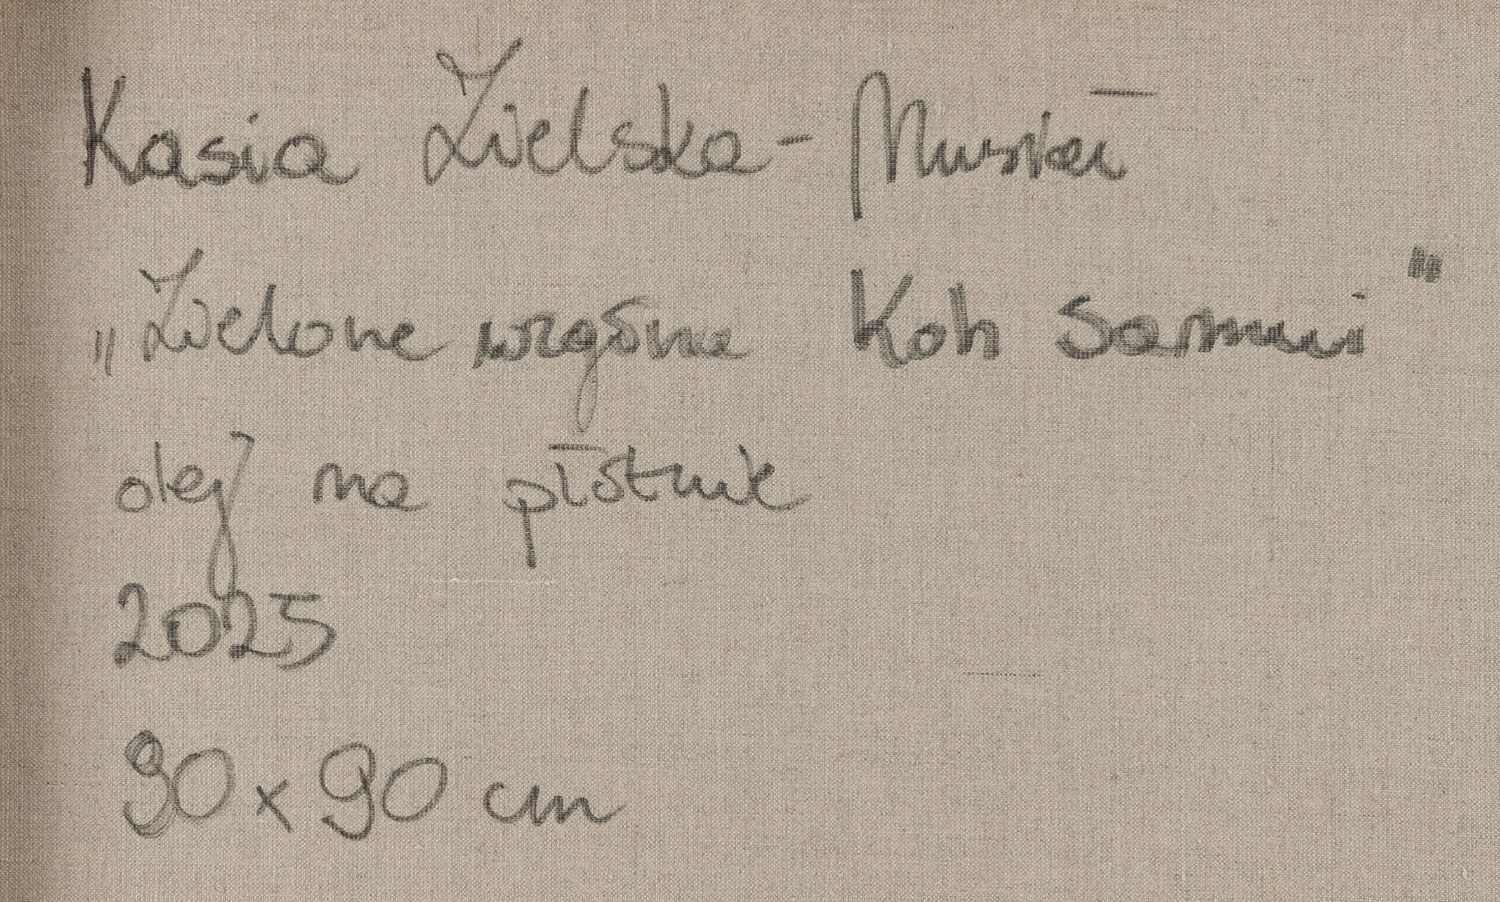 Kasia Zielska-
„Zielone wzgórza Koh Samui"
olej na płótnie
2025
90 x 90 cm